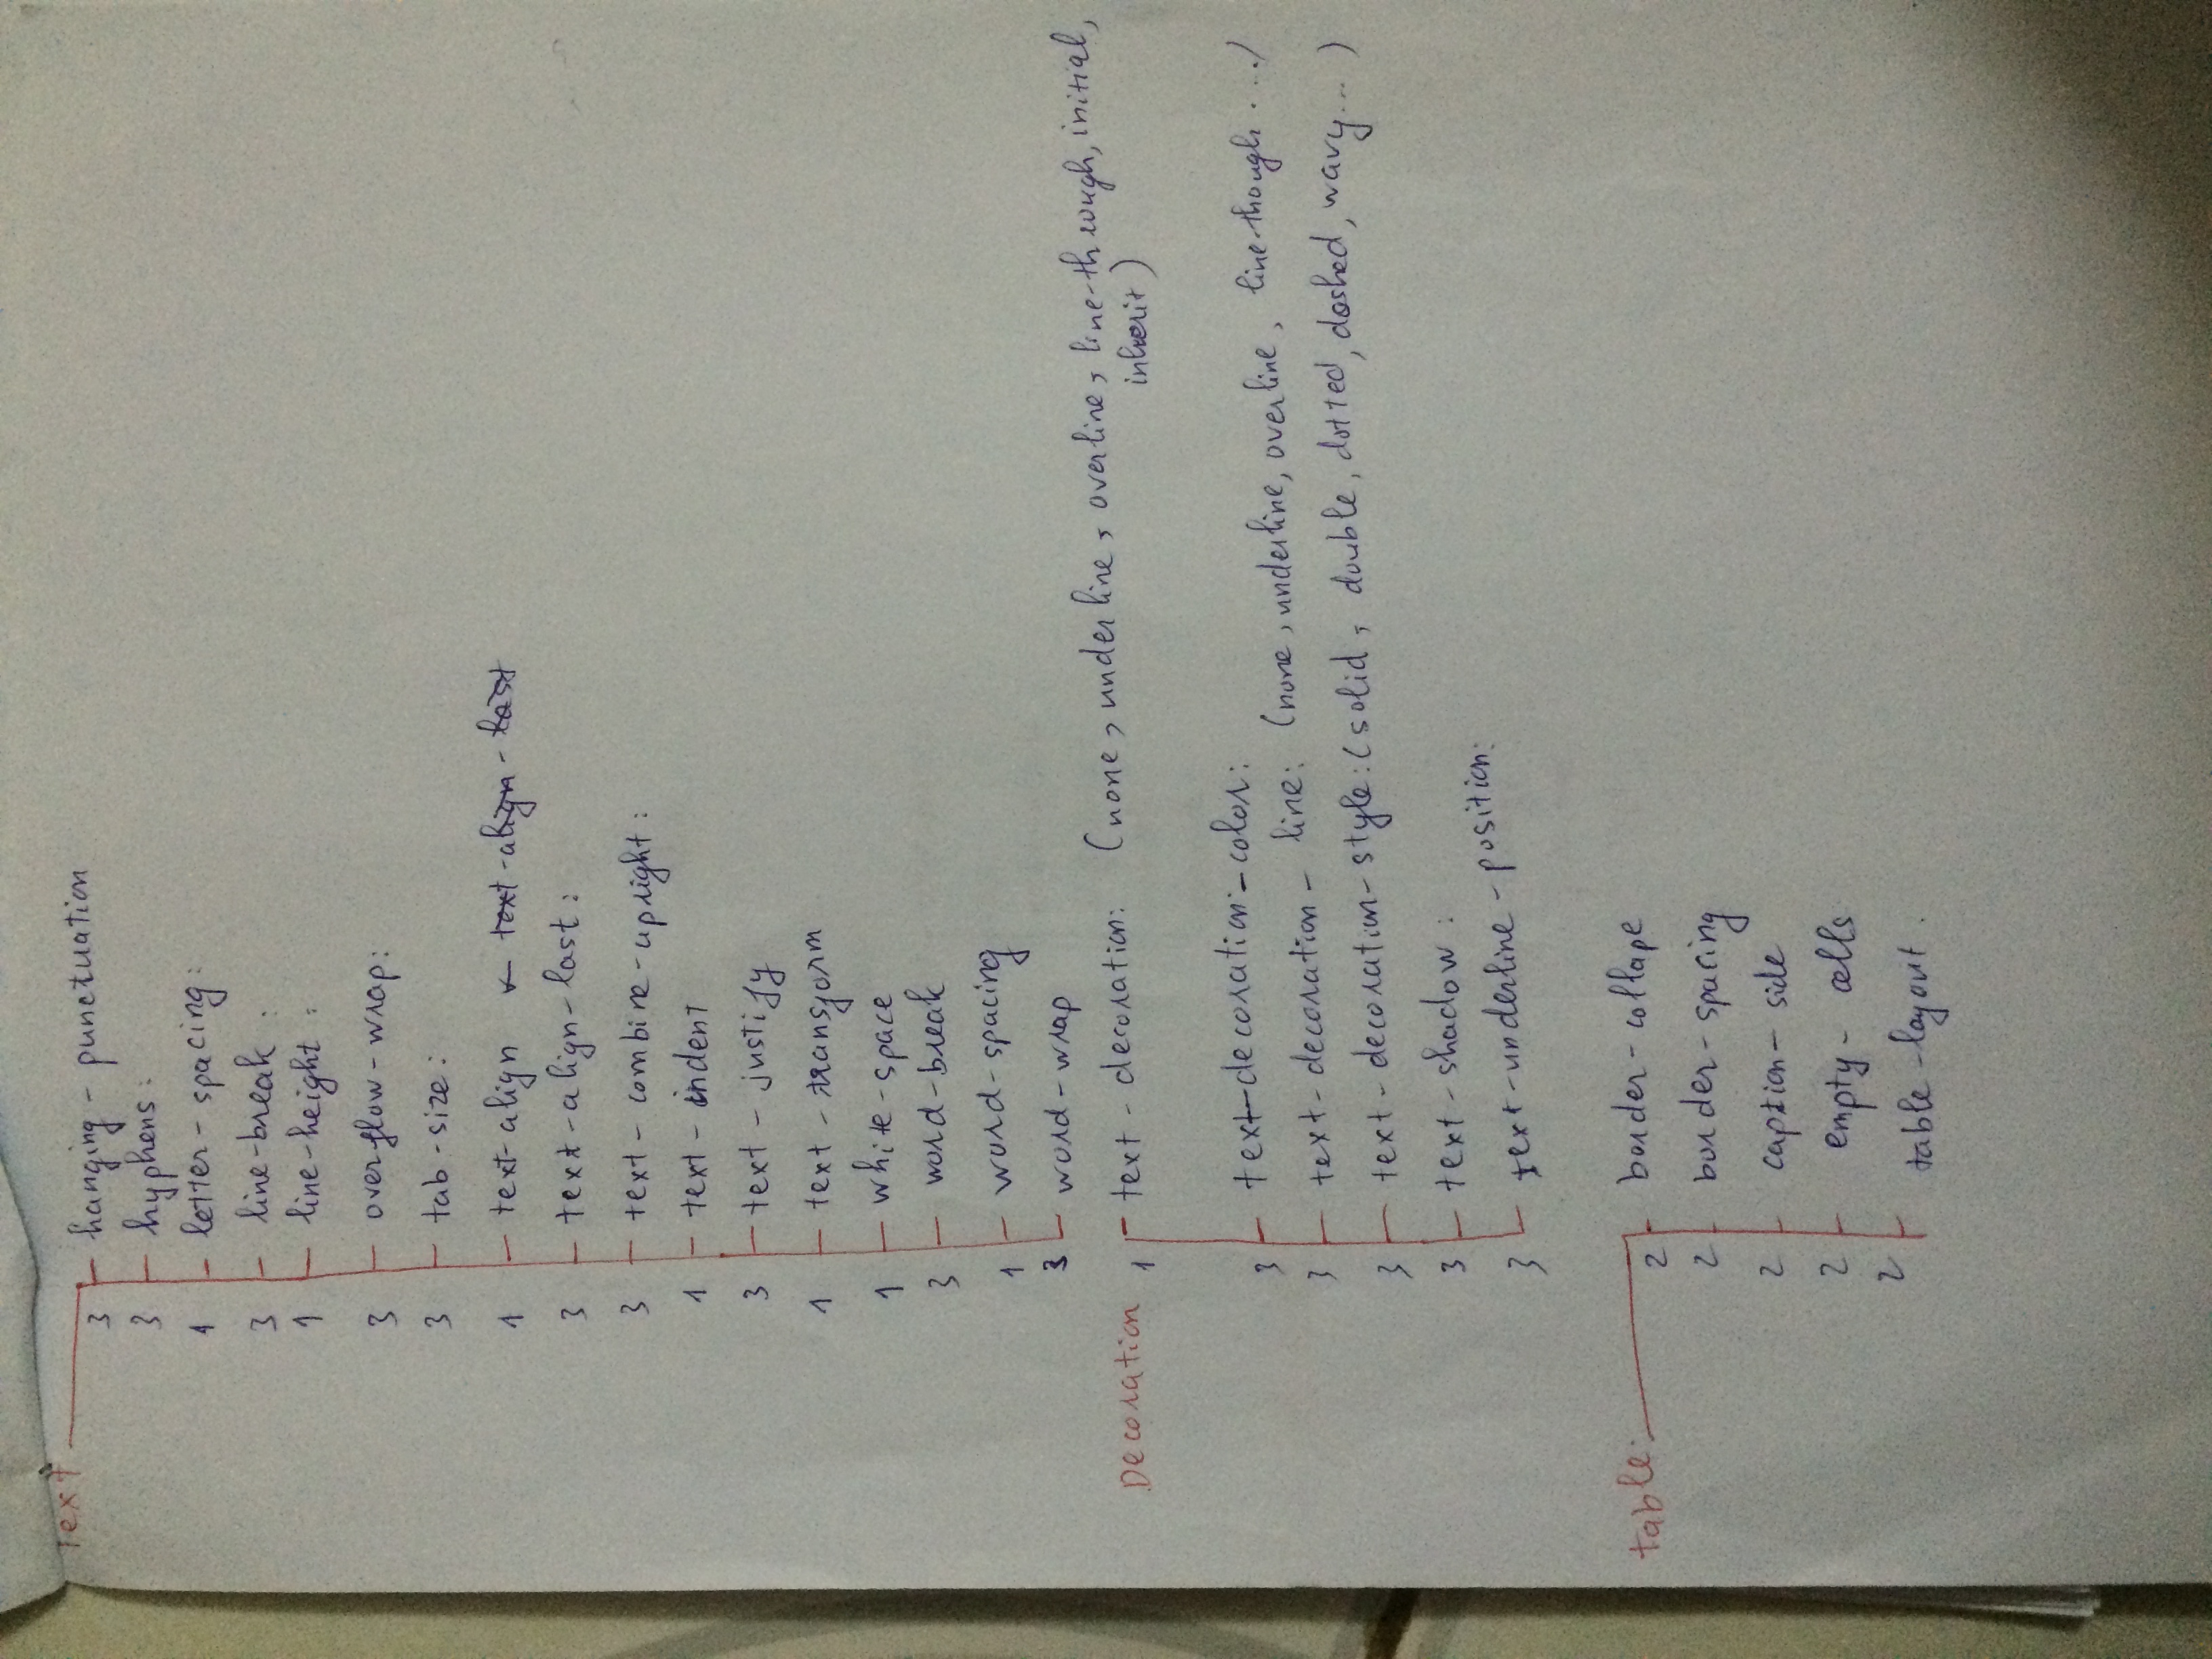 Text
3 hanging - punctuation
3 hyphens :
1 letter - spacing :
3 line-break :
1 line-height :
3 overflow - wrap :
3 tab - size :
1 text-align ← text-align-last
3 text-align-last :
3 text - combine-upright :
1 text - indent
3 text - justify
1 text - transform
1 white-space
3 word-break
1 word-spacing
3 word-wrap
Decoration 1 text - decoration: (none, underline, overline, line-through, initial,
inherit)
3 text-decoration-color:
3 text-decoration- line: (none, underline, overline, line-though ....)
3 text-decoration-style: (solid, double, dotted, dashed, wavy...)
3 text-shadow :
3 text-underline-position:
table:
2 border-collape
2 border-spacing
2 caption- side
2 empty- cells
2 table-layout.